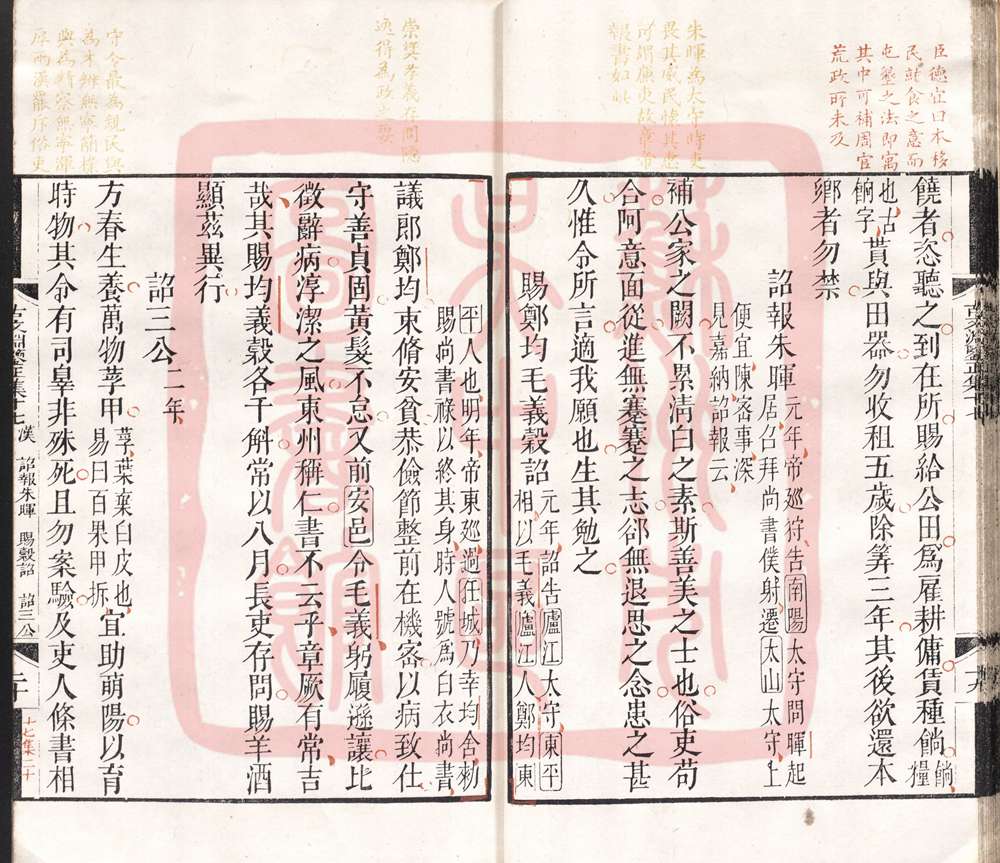 臣德宜曰本移
民就食之意而
屯墾之法即寓
其中可補周官
荒政所未及
饒者恣聽之到在所賜給公田爲雇耕傭賃種餉餉糧
也古
餉字貰與田器勿收租五歲除筭三年其後欲還本
鄉者勿禁
詔報朱暉元年帝巡狩告南陽太守問暉起
居召拜尚書僕射遷太山太守上
便宜陳宻事深
見嘉納詔報云
朱暉為太守時吏
畏其威民懷其惠
可謂廉吏故章帝
報書如此
補公家之闕不累清白之素斯善美之士也俗吏苟
合阿意面從進無蹇蹇之志郤無退思之念患之甚
久惟令所言適我願也生其勉之
賜鄭均毛義穀詔元年詔告廬江太守東平
相以毛義廬江人鄭均東
平人也明年帝東廵過任城乃幸均舍勑
賜尚書祿以終其身時人號爲白衣尚書
崇奬孝義存問隱
逸得為政之要
議郎鄭均束脩安貧恭儉節整前在機宻以病致仕
守善貞固黄髮不怠又前安邑令毛義躬履遜讓比
徵辭病淳潔之風東州稱仁書不云乎章厥有常吉
哉其賜均義穀各千斛常以八月長吏存問賜羊酒
顯茲異行
詔三公二年
守令最為親民與
為木辨無寧簡樸
與為精察無寧渾
厚兩漢最斥俗吏
方春生養萬物莩甲莩葉裏白皮也
易曰百果甲拆宜助萌陽以育
時物其令有司辠非殊死且勿案驗及吏人條書相
古文淵鑒正集十七 漢 詔報朱暉 賜穀詔 詔三公 二十
十七集二十